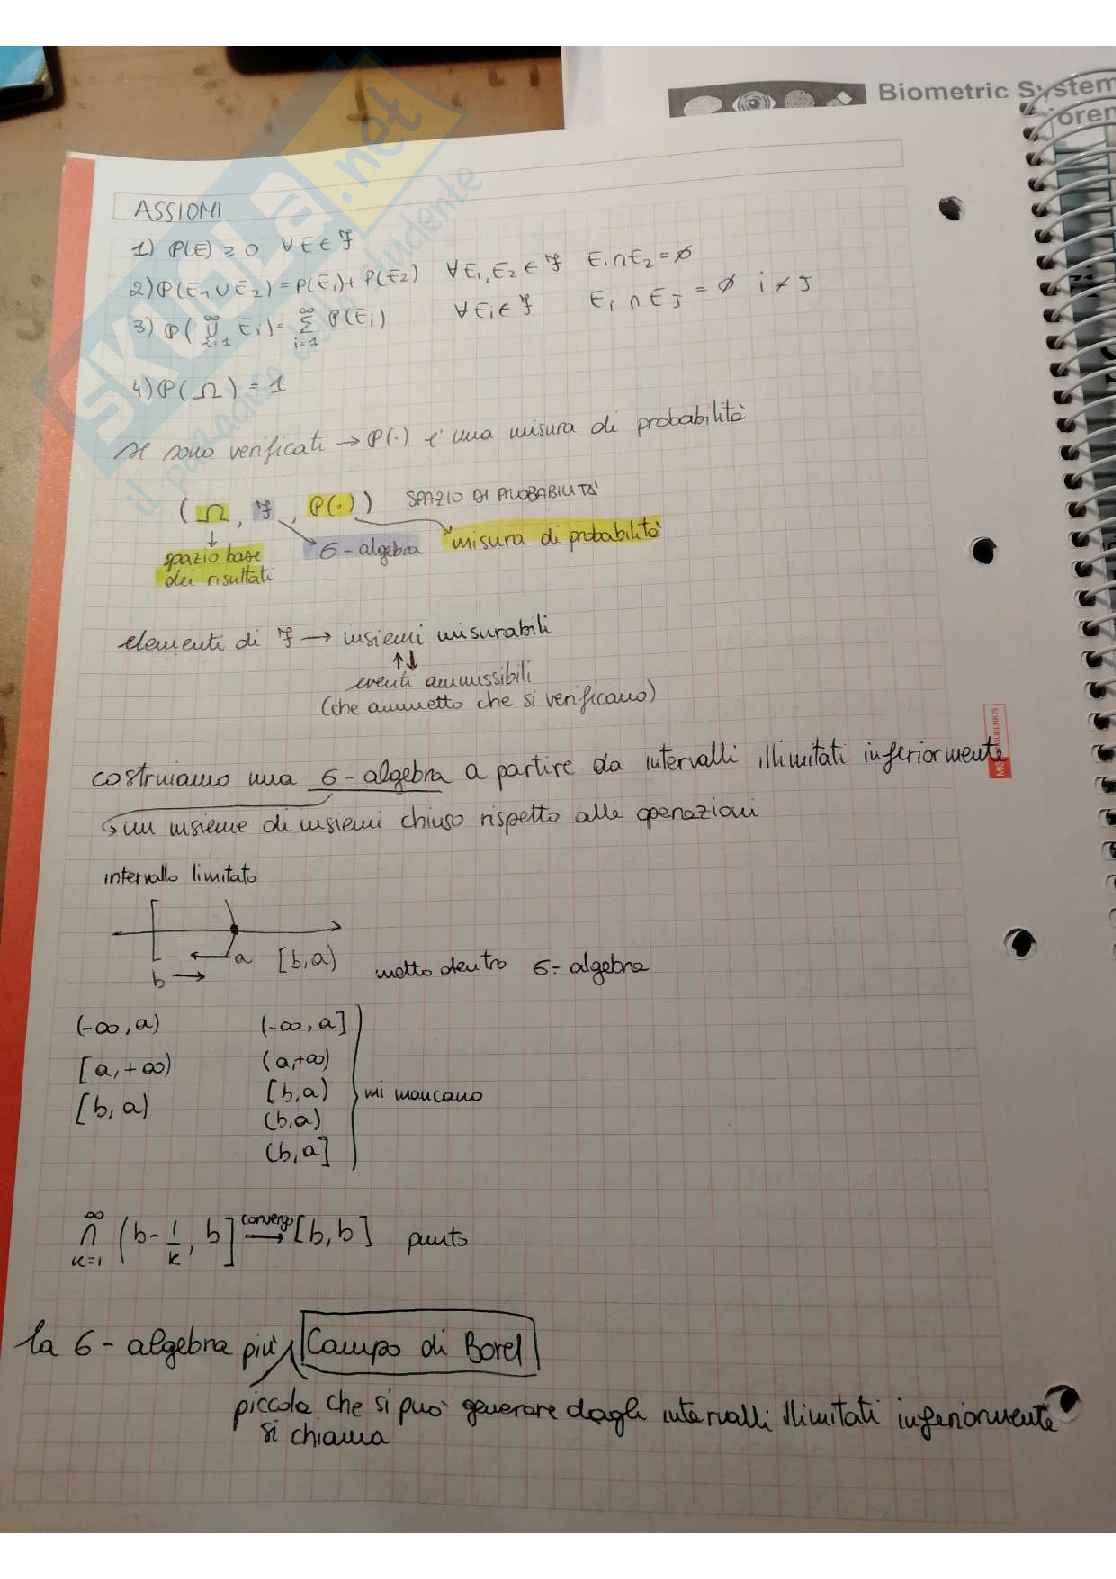 Biometric System
ASSIOMI
1) P(E) ≥ 0 ∀ E ∈ F
2) P(E1 ∪ E2) = P(E1) + P(E2) ∀ E1, E2 ∈ F E1 ∩ E2 = ∅
3) P(∪ i=1 ∞ Ei) = ∑ i=1 ∞ P(Ei) ∀ Ei ∈ F Ei ∩ EJ = ∅ i ≠ J
4) P(Ω) = 1
se sono verificati → P(·) è una misura di probabilità
(Ω, F, P(·)) SPAZIO DI PROBABILITÀ
spazio base dei risultati
σ-algebra
misura di probabilità
elementi di F → insiemi misurabili
↑↓
eventi ammissibili
(che ammetto che si verificano)
costruiamo una σ-algebra a partire da intervalli illimitati inferiormente
↳ un insieme di insiemi chiuso rispetto alle operazioni
intervallo limitato
b → ← a [b,a) metto dentro σ-algebra
(-∞, a) (-∞, a]
[a, +∞) (a, +∞)
[b, a) [b, a)
(b, a)
(b, a]
mi mancano
∩ k=1 ∞ (b - 1/k, b] converge → [b, b] punto
la σ-algebra più Campo di Borel
piccola che si può generare dagli intervalli illimitati inferiormente
si chiama
SKUOLA.net